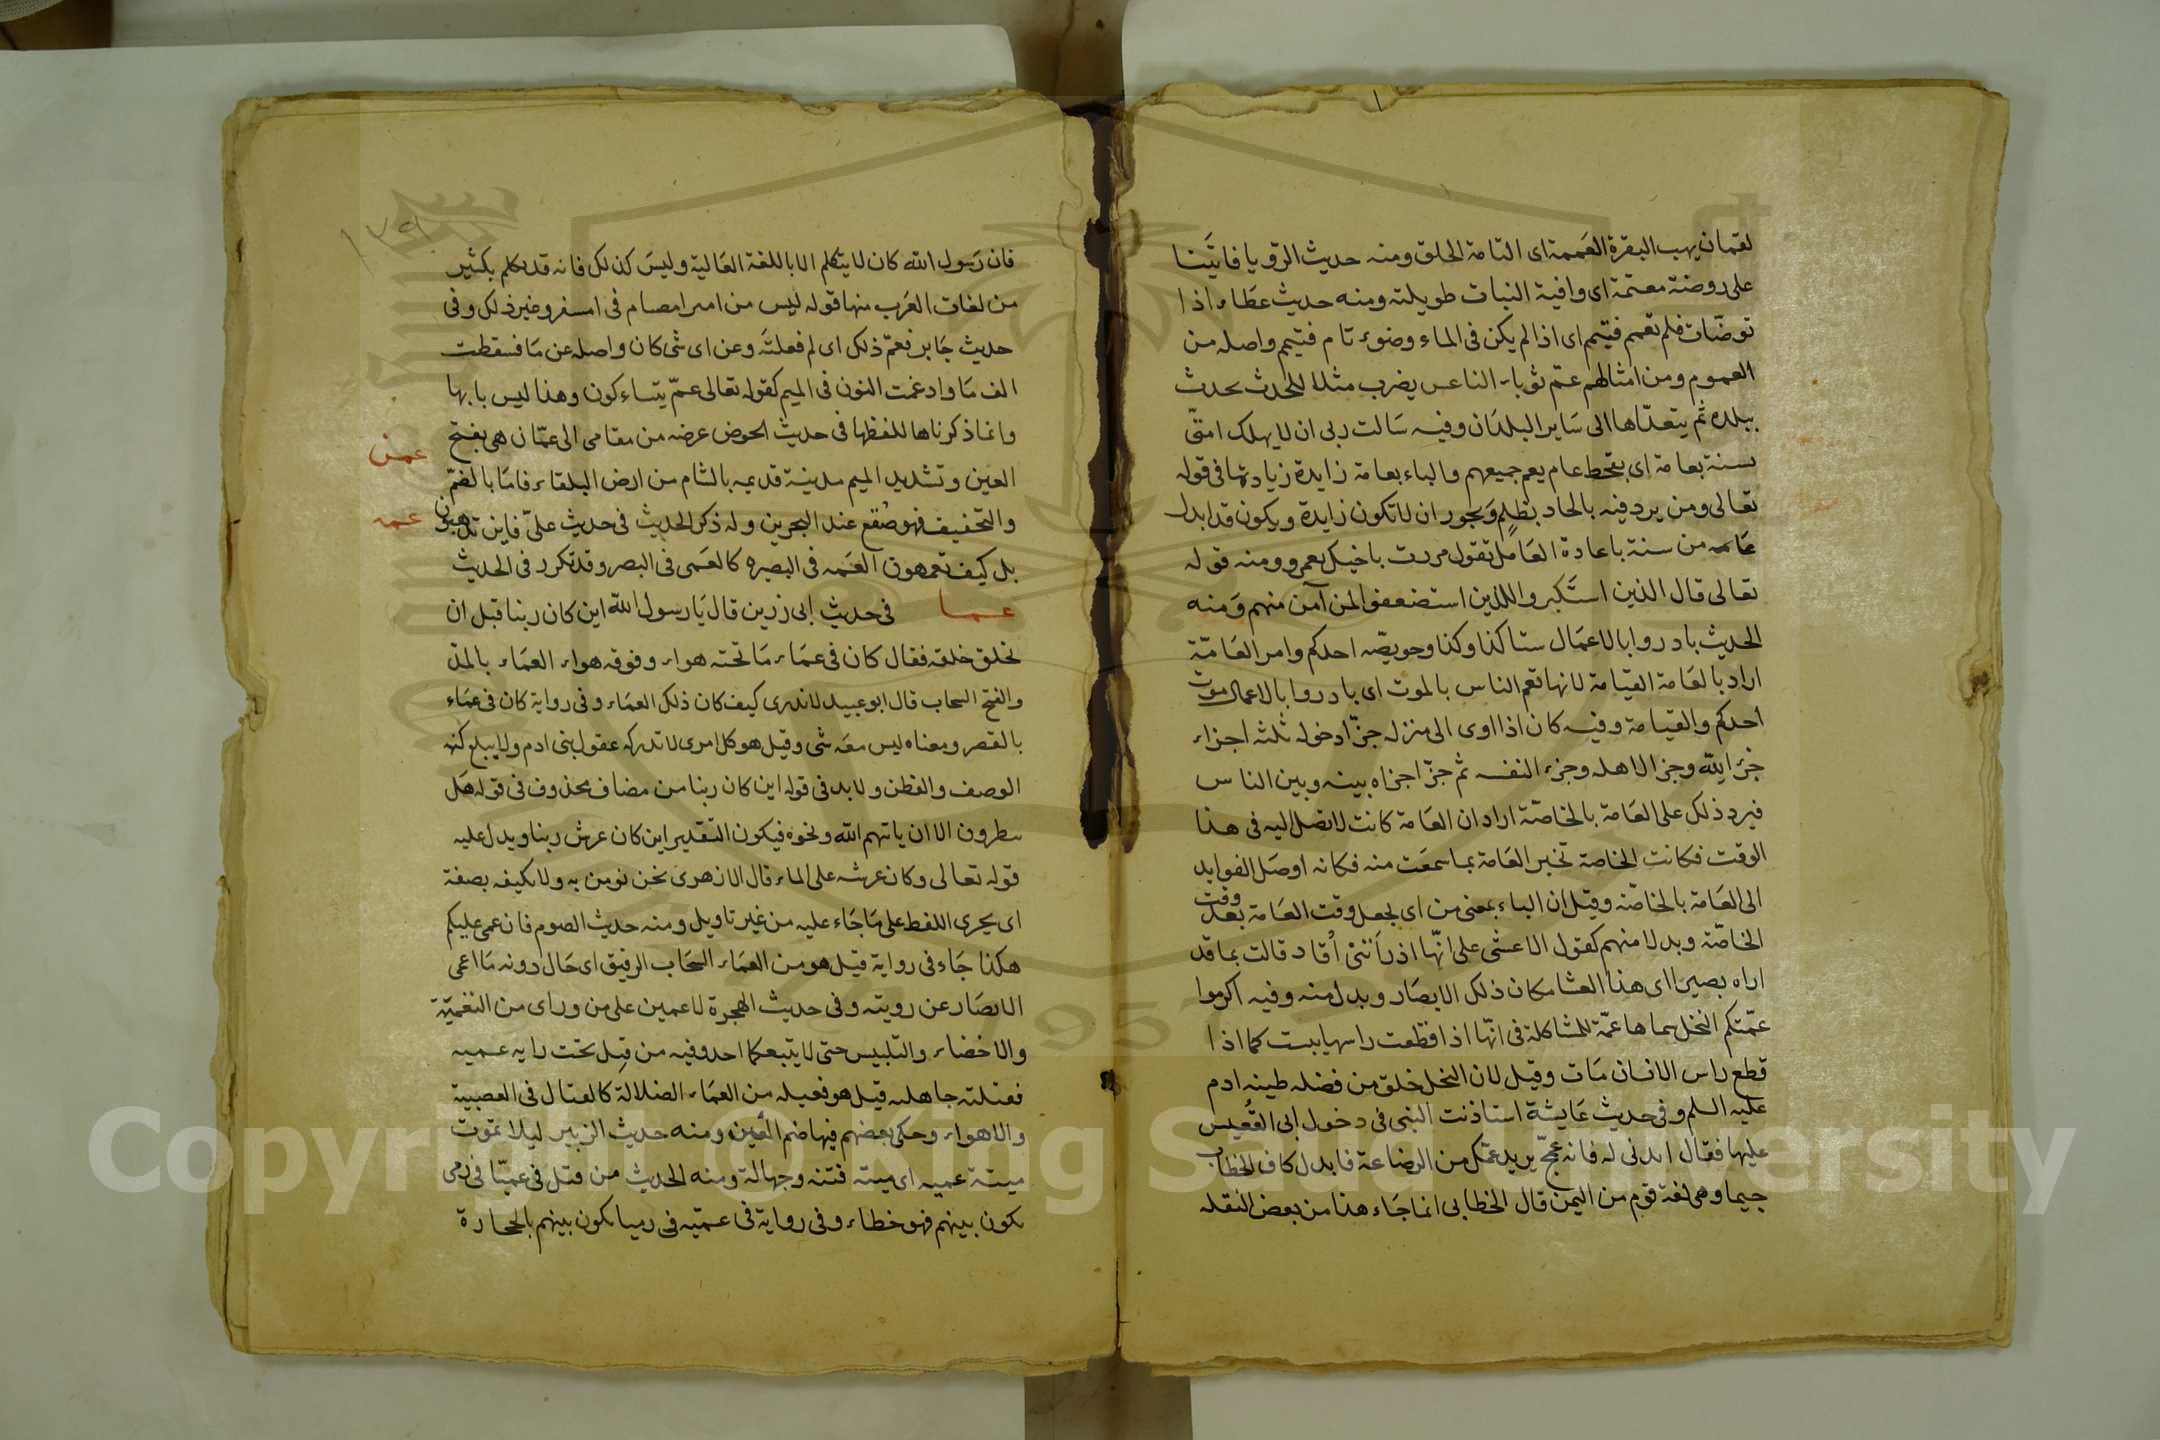 لقمان يهب البقرة العممة اى التامة الخلق ومنه حديث الرؤيا فاتينا
على روضة معتمة اى وافية النبات طويلته ومنه حديث عطاء اذا
توضّات فلم تعمم فتيمم اى اذا لم يكن فى الماء وضوء تام فتيمم واصله من
العموم ومن امثالهم عمّ ثوباء الناعس يضرب مثلا للحدث يحدث
ببلده ثم يتعدّاها الى ساير البلدان وفيه سالت ربى ان لا يهلك امتى
بسنة بعامة اى بقحط عام يعم جميعهم والباء بعامة زايدة زيادتها فى قوله
تعالى ومن يرد فيه بالحاد بظلم ويجوز ان لا تكون زايدة ويكون قد ابدل
عامة من سنة باعادة العامل تقول مررت باخيك بعمرو ومنه قوله
تعالى قال الذين استكبروا للذين استضعفوا لمن آمن منهم ومنه
الحديث بادروا بالاعمال ستا كذا وكذا وخويصّه احدكم وامر العامّة
اراد بالعامة القيامة لانها تعم الناس بالموت اى بادروا بالاعمال موت
احدكم والقيامة وفيه كان اذا اوى الى منزله جزّا دخوله ثلثه اجزاء
جزءا لله وجزا لاهله وجزء النفسه ثم جزّا اجزاه بينه وبين الناس
فيرد ذلك على العامة بالخاصّة اراد ان العامة كانت لا تصل اليه فى هذا
الوقت فكانت الخاصة تخبر العامة بما سمعت منه فكانه اوصل الفوايد
الى العامة بالخاصّة وقيل ان الباء بمعنى من اى يجعل وقت العامة بعد وقت
الخاصّة وبدلا منهم كقول الاعشى على انّها اذ رأتنى أقاد قالت بما قد
اراه بصيرا اى هذا العشا مكان ذلك الابصار وبدل منه وفيه اكرموا
عمّتكم النخل سماها عمّة للمشاكلة فى انّها اذا قطعت راسها يبست كما اذا
قطع راس الانسان مات وقيل لان النخل خلق من فضله طينه ادم
عليه السلم وفى حديث عايشة استاذنت النبى فى دخول ابى القُعيس
عليها فقال ايدنى له فانه عمجّ يريد عمّك من الرضاعة فابدل كاف الخطاب
جيما وهى لغة قوم من اليمن قال الخطابى انما جاء هذا من بعض النقله
فان رسول الله كان لا يتكلم الا باللغة العالية وليس كذلك فانه قد تكلم بكثير
من لغات العرب منها قوله ليس من امبر امصام فى امسفر وغير ذلك وفى
حديث جابر فعمّ ذلك اى لم فعلته وعن اى شى كان واصله عن ما فسقطت
الف ما وادغمت النون فى الميم كقوله تعالى عمّ يتساءلون وهذا ليس بابها
وانما ذكرناها للفظها فى حديث الحوض عرضه من مقامى الى عمّان هى بفتح
عمن
العين وتشديد الميم مدينة قديمه بالشام من ارض البلقاء فاما بالضّم
والتخفيف فهو صُقع عند البحرين وله ذكر الحديث فى حديث علىّ فاين تذهبون
عمه
بل كيف تعمهون العمه فى البصيره كالعمى فى البصر وقد تكرر فى الحديث
عما فى حديث ابى زرين قال يا رسول الله اين كان ربنا قبل ان
يخلق خلقه فقال كان فى عماء ما تحته هواء وفوقه هواء العماء بالمد
والفتح السحاب قال ابو عبيد لا ندرى كيف كان ذلك العماء وفى رواية كان فى عماء
بالقصر ومعناه ليس معه شى وقيل هو كل امرى لا تدركه عقول بنى ادم ولا يبلغ كنهه
الوصف والفطن ولا بد فى قوله اين كان ربنا من مضاف محذوف فى قوله هل
ينظرون الا ان ياتيهم الله ونحوه فيكون التقدير اين كان عرش ربنا ويدل عليه
قوله تعالى وكان عرشه على الماء قال الازهرى نحن نومن به ولا نكيفه بصفة
اى يجرى اللفظ على ما جاء عليه من غير تاويل ومنه حديث الصوم فان عمى عليكم
هكذا جاء فى رواية قيل هو من العماء السحاب الرقيق اى حال دونه ما اعمى
الابصار عن رويته وفى حديث الهجرة لاعمين على من وراى من التغمية
والاخفاء والتلبيس حتى لا يتبعكما احد وفيه من قتل تحت رايه عميه
فقتلته جاهليه قيل هو فعيله من العماء الضلالة كالقتال فى العصبية
والاهواء وحكى بعضهم فيها ضم العين ومنه حديث الزبير ليلا تموت
ميتة عميه اى ميتة فتنه وجهالة ومنه الحديث من قتل فى عميّا فى رمى
يكون بينهم فهو خطاء وفى رواية فى عميّه فى رميا يكون بينهم بالحجارة
١٧٩
Copyright © King Saud University
1957